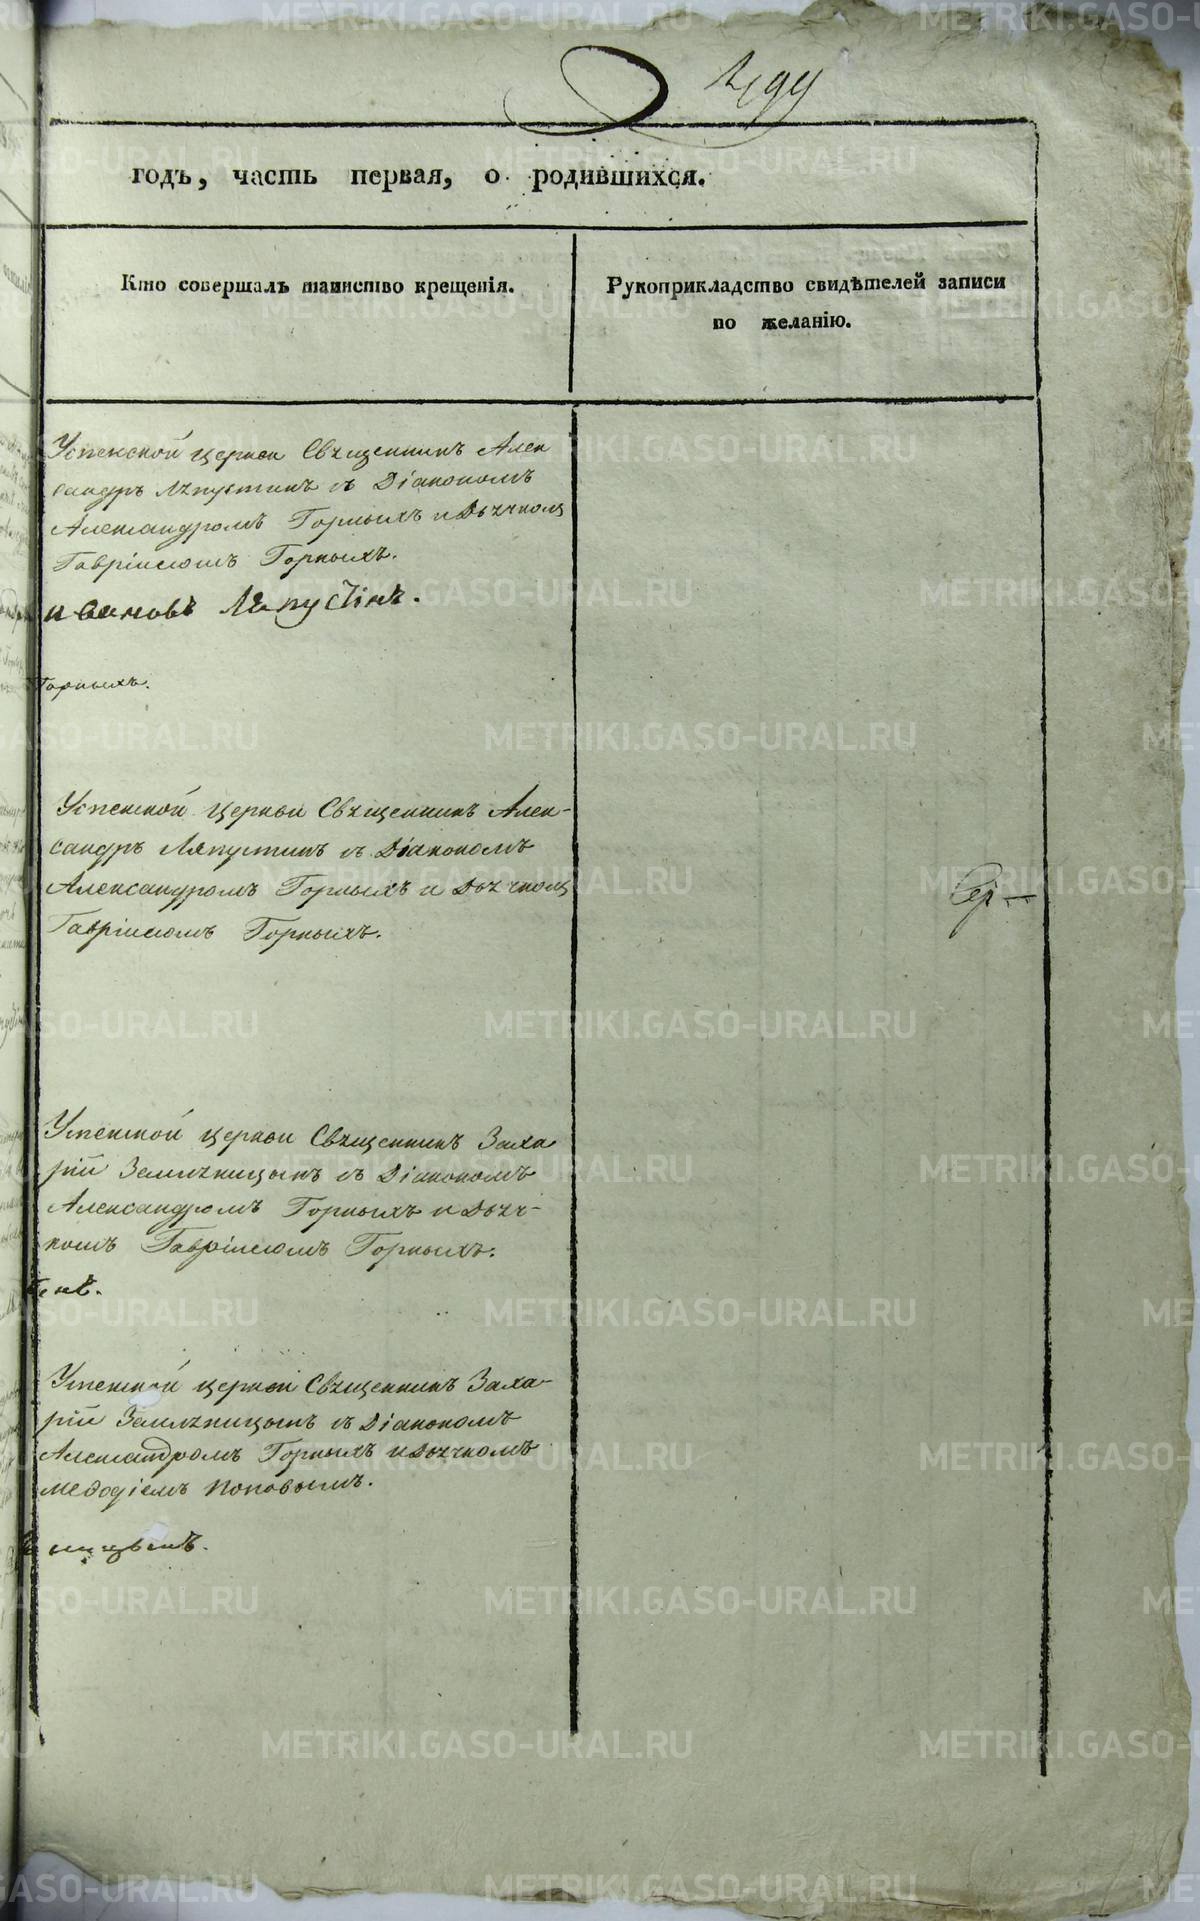 годъ, часть первая, о родившихся.
Кто совершалъ таинство крещенія.
Рукоприкладство свидѣтелей записи
по желанію.
Успенской церкви Священникъ Алек
сандръ Ляпустинъ съ Діакономъ
Александромъ Горныхъ и Дьячкомъ
Гавріиломъ Горныхъ.
Ивановъ Ляпустинъ.
Горныхъ.
Успенской церкви Священникъ Алек-
сандръ Ляпустинъ съ Діакономъ
Александромъ Горныхъ и Дьячкомъ
Гавріиломъ Горныхъ.
Успенской церкви Священникъ Заха
рій Земляницынъ съ Діакономъ
Александромъ Горныхъ и Дьяч-
комъ Гавріиломъ Горныхъ.
Успенской церкви Священникъ Заха-
рій Земляницынъ съ Діакономъ
Александромъ Горныхъ и Дьячкомъ
Меѳодіемъ Поповымъ.
METRIKI.GASO-URAL.RU